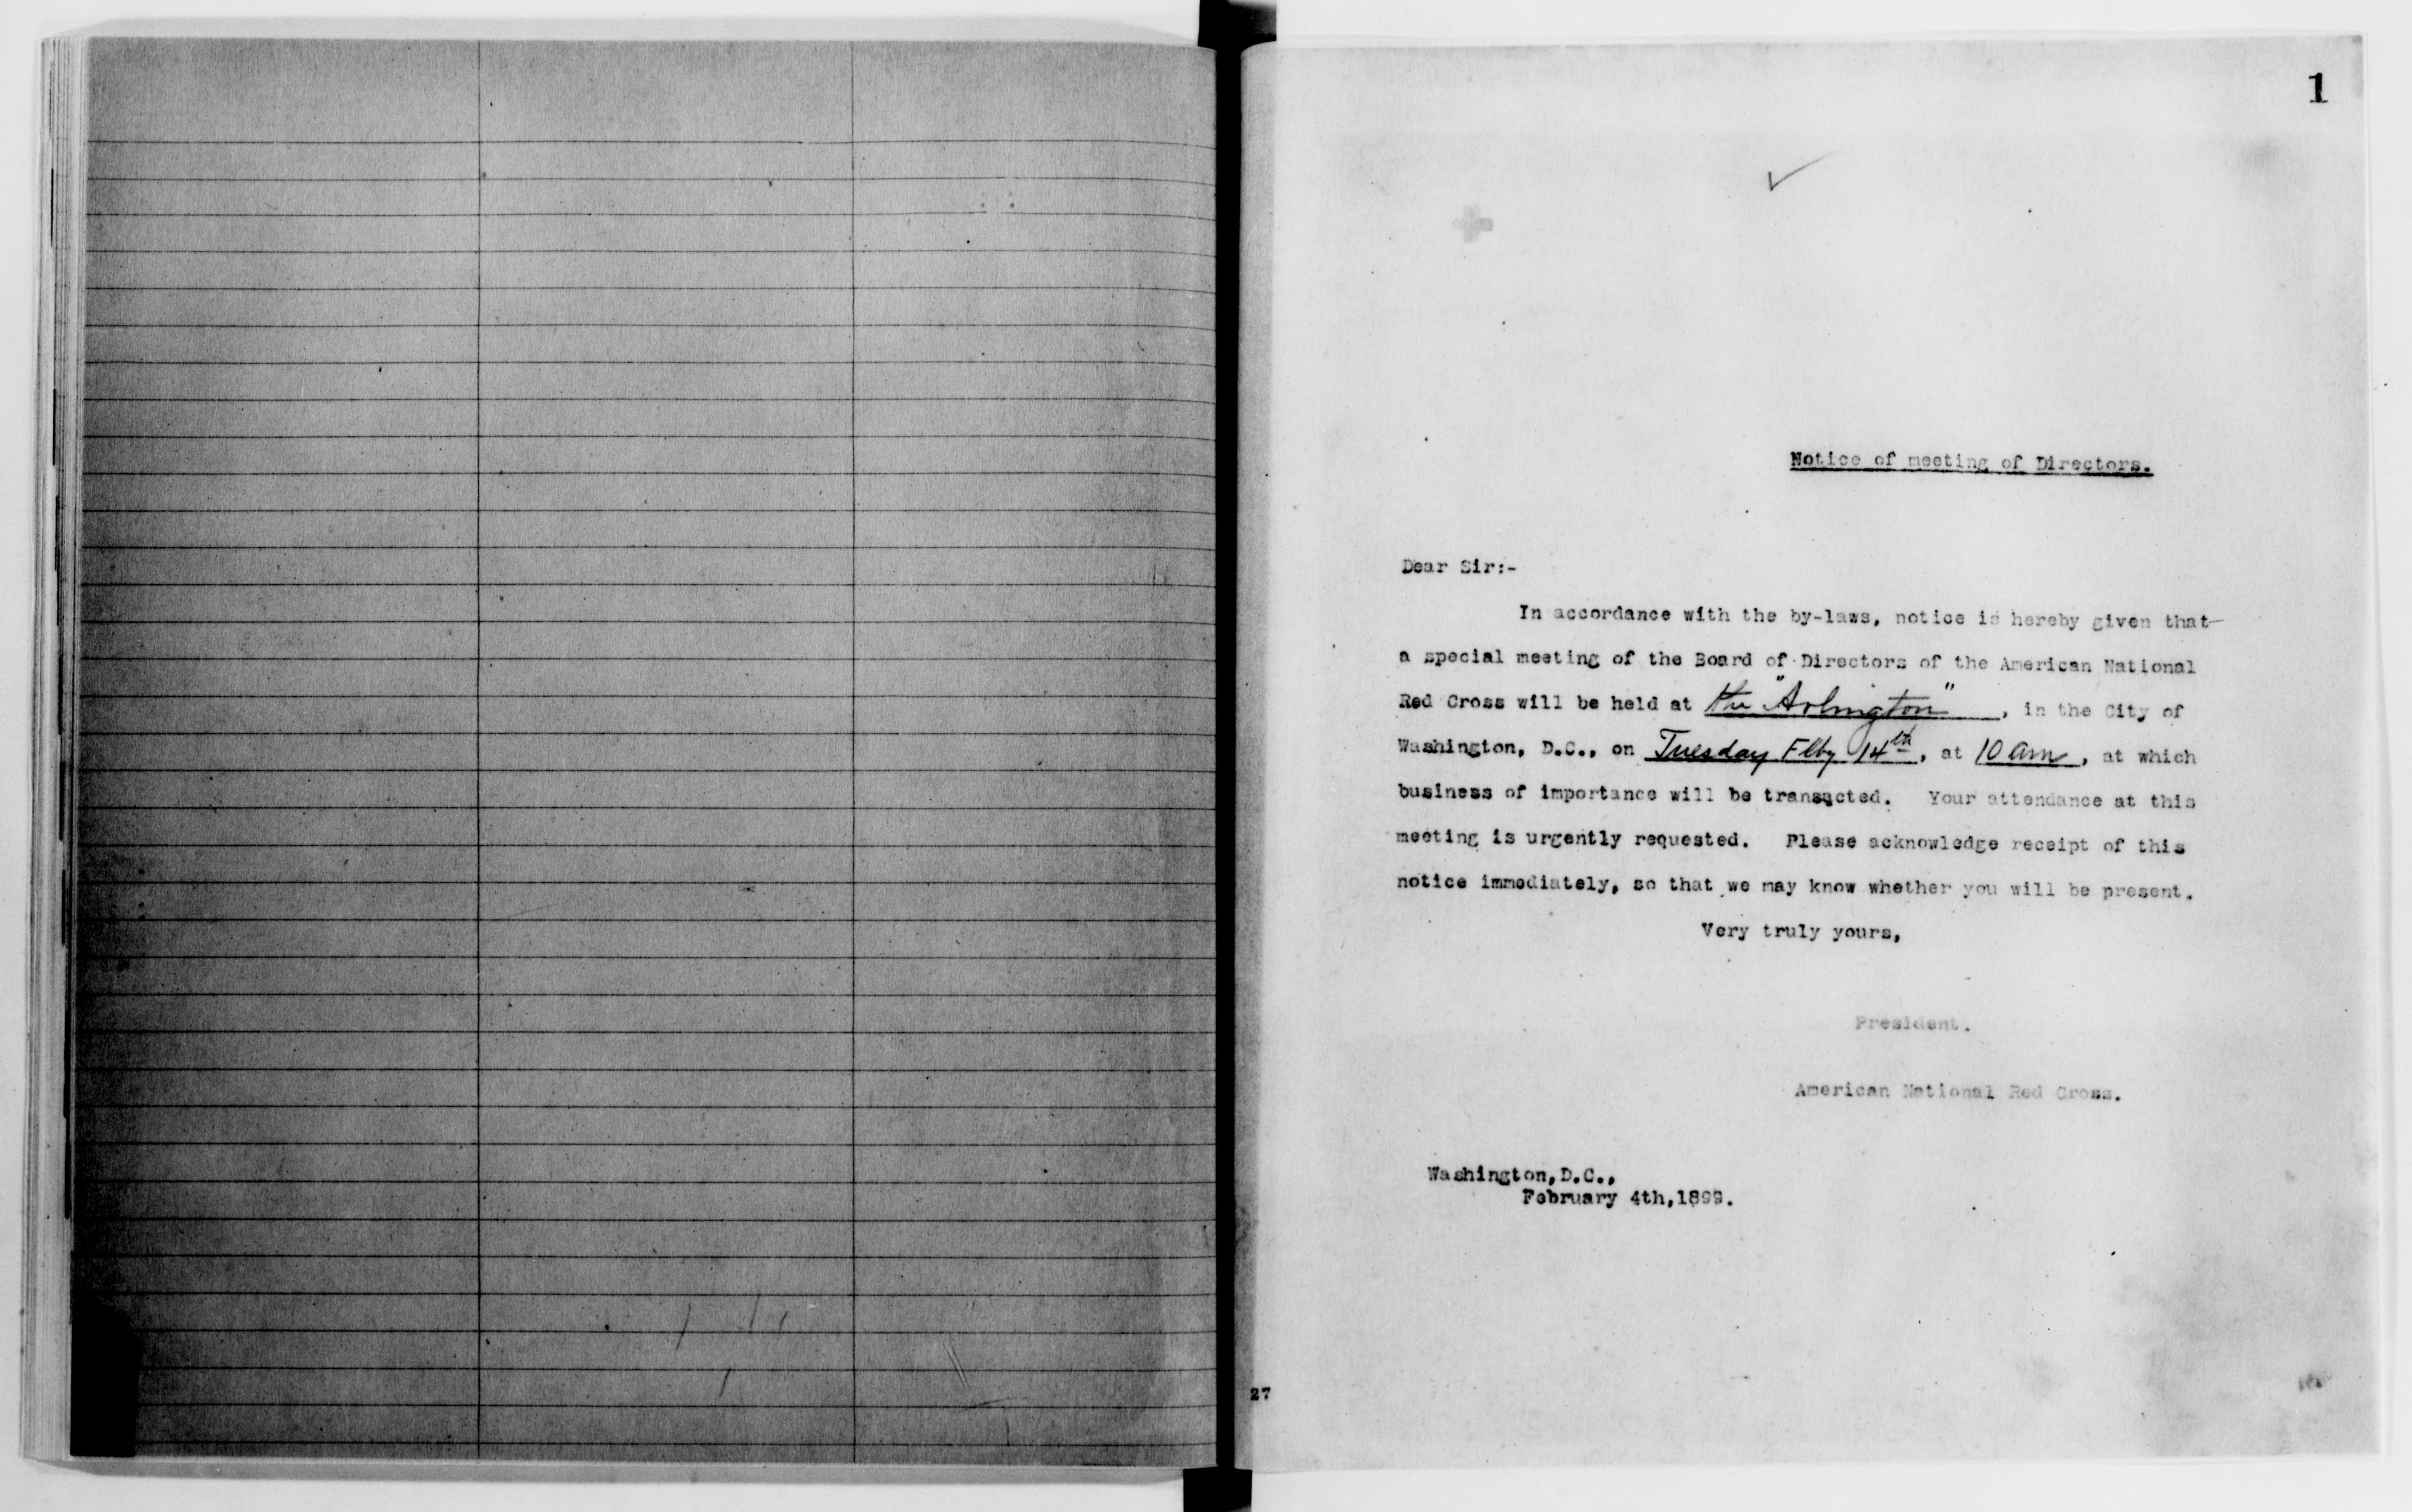 1
Notice of meeting of Directors.
Dear Sir:-
In accordance with the by-laws, notice is hereby given that
a special meeting of the Board of Directors of the American National
Red Cross will be held at the "Arlington", in the City of
Washington, D.C., on Tuesday Feby 14th, at 10 am, at which
business of importance will be transacted. Your attendance at this
meeting is urgently requested. Please acknowledge receipt of this
notice immediately, so that we may know whether you will be present.
Very truly yours,
President.
American National Red Cross.
Washington,D.C.,
February 4th,1899.
27